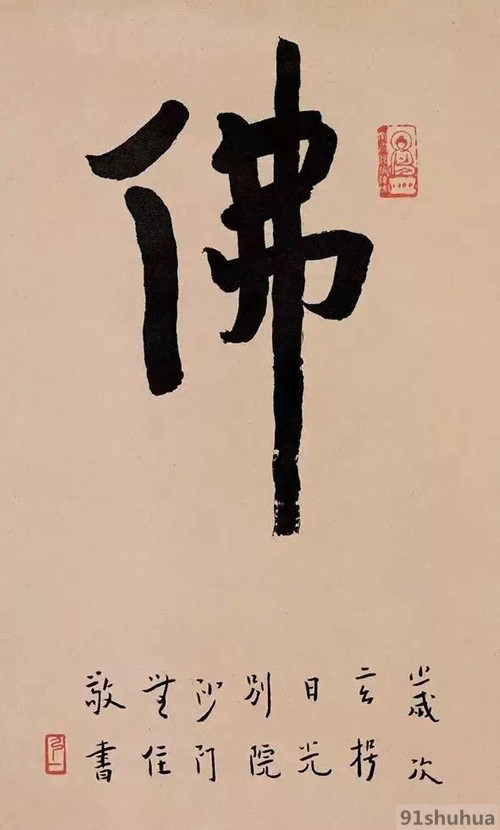 佛
歲次
玄枵
日光
別院
沙門
無住
敬書
91shuhua